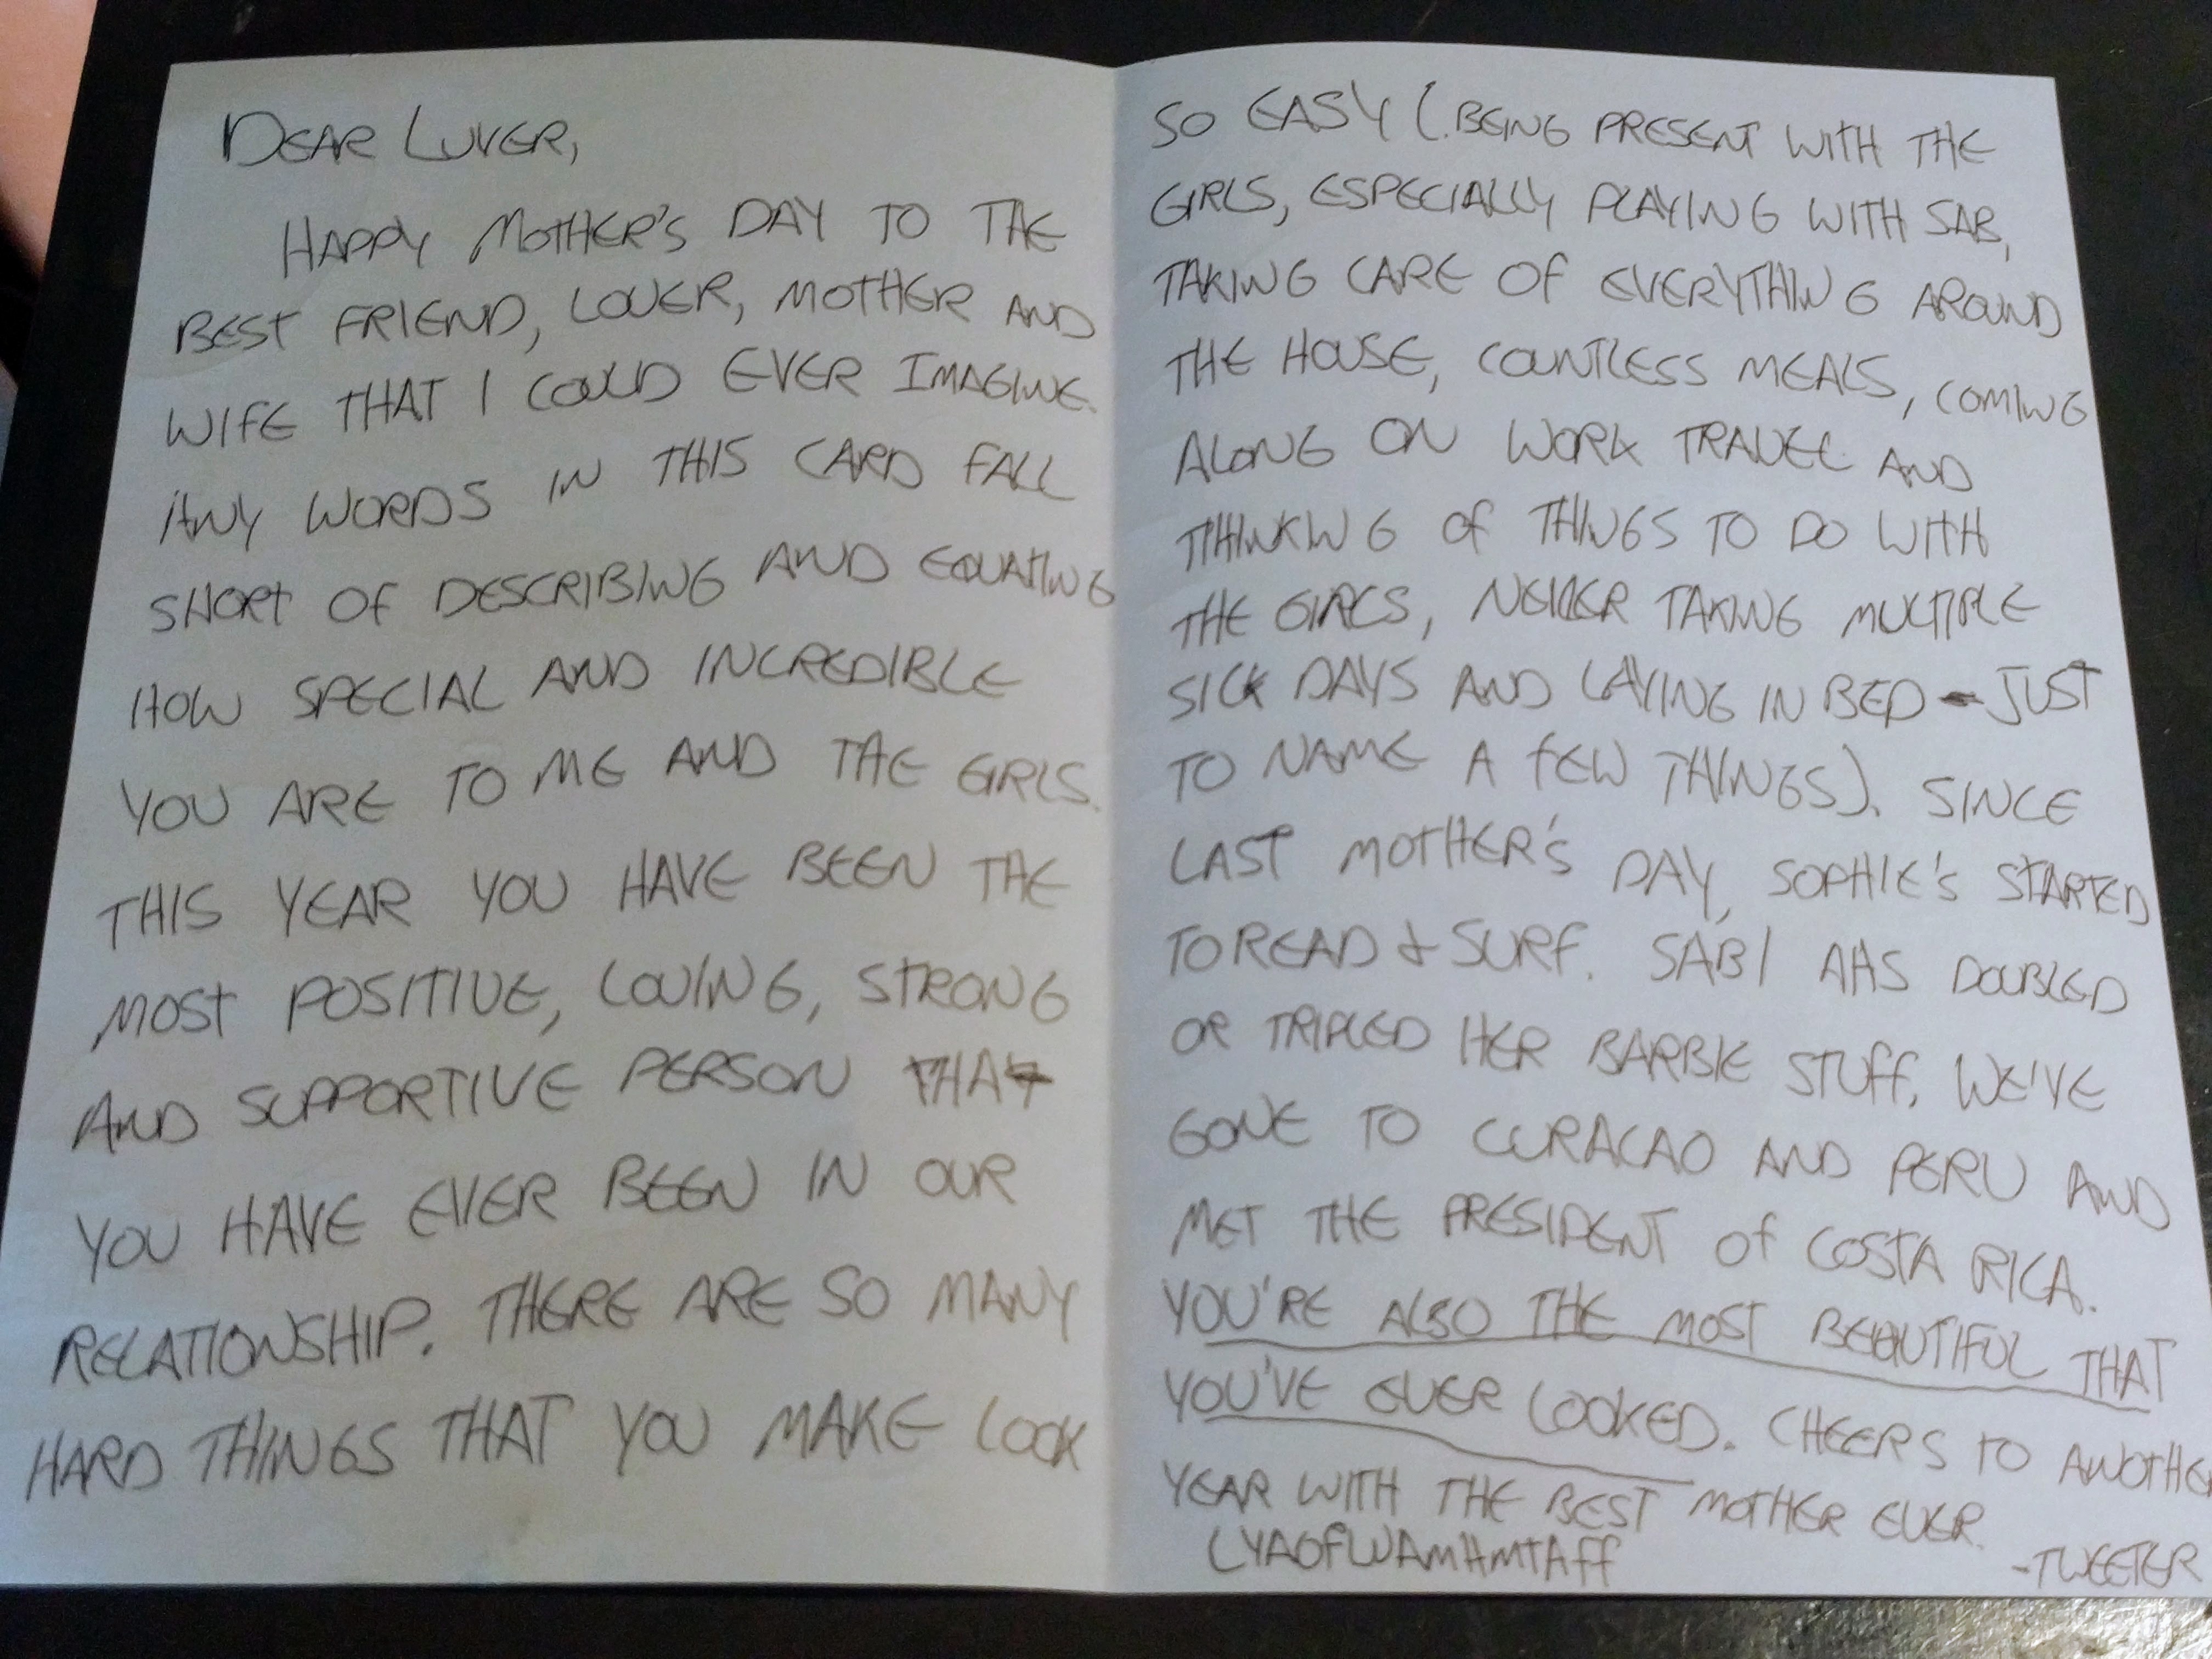 DEAR LUVER,
HAPPY MOTHER'S DAY TO THE
BEST FRIEND, LOVER, MOTHER AND
WIFE THAT I COULD EVER IMAGINE.
ANY WORDS IN THIS CARD FALL
SHORT OF DESCRIBING AND EQUATING
HOW SPECIAL AND INCREDIBLE
YOU ARE TO ME AND THE GIRLS.
THIS YEAR YOU HAVE BEEN THE
MOST POSITIVE, LOVING, STRONG
AND SUPPORTIVE PERSON THAT
YOU HAVE EVER BEEN IN OUR
RELATIONSHIP. THERE ARE SO MANY
HARD THINGS THAT YOU MAKE LOOK
SO EASY (BEING PRESENT WITH THE
GIRLS, ESPECIALLY PLAYING WITH SAB,
TAKING CARE OF EVERYTHING AROUND
THE HOUSE, COUNTLESS MEALS, COMING
ALONG ON WORK TRAVEL AND
THINKING OF THINGS TO DO WITH
THE GIRLS, NEVER TAKING MULTIPLE
SICK DAYS AND LAYING IN BED - JUST
TO NAME A FEW THINGS). SINCE
LAST MOTHER'S DAY, SOPHIE'S STARTED
TO READ & SURF. SABI HAS DOUBLED
OR TRIPLED HER BARBIE STUFF. WE'VE
GONE TO CURACAO AND PERU AND
MET THE PRESIDENT OF COSTA RICA.
YOU'RE ALSO THE MOST BEAUTIFUL THAT
YOU'VE EVER LOOKED. CHEERS TO ANOTHER
YEAR WITH THE BEST MOTHER EVER.
LYAOFWAMHMTAFF
-TWEETER